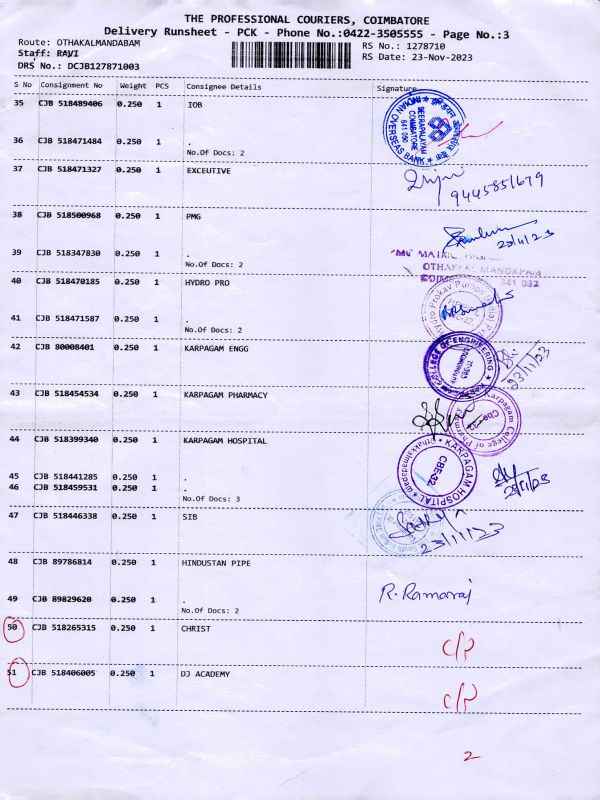 THE PROFESSIONAL COURIERS, COIMBATORE
Delivery Runsheet - PCK - Phone No.:0422-3505555 - Page No.:3
Route: OTHAKALMANDABAM RS No.: 1278710
Staff: RAVI RS Date: 23-Nov-2023
DRS No.: DCJB127871003
S No Consignment No Weight PCS Consignee Details Signature
35 CJB 518489406 0.250 1 IOB
INDIAN OVERSEAS BANK
COIMBATORE
641 050
36 CJB 518471484 0.250 1 .
No.Of Docs: 2
37 CJB 518471327 0.250 1 EXCEUTIVE
9445851679
38 CJB 518500968 0.250 1 PMG
23/11/23
39 CJB 518347830 0.250 1 .
No.Of Docs: 2
OTHAKKAL MANDAPAM
641 032
40 CJB 518470185 0.250 1 HYDRO PRO
41 CJB 518471587 0.250 1 .
No.Of Docs: 2
42 CJB 80008401 0.250 1 KARPAGAM ENGG
COLLEGE OF ENGINEERING
23/11/23
43 CJB 518454534 0.250 1 KARPAGAM PHARMACY
Karpagam College of Pharmacy
Cbe-32
44 CJB 518399340 0.250 1 KARPAGAM HOSPITAL
KARPAGAM HOSPITAL
CBE-32
45 CJB 518441285 0.250 1 .
46 CJB 518459531 0.250 1 .
No.Of Docs: 3
23/11/23
47 CJB 518446338 0.250 1 SIB
23/11/23
48 CJB 89786814 0.250 1 HINDUSTAN PIPE
R. Ramaraj
49 CJB 89829620 0.250 1 .
No.Of Docs: 2
50 CJB 518265315 0.250 1 CHRIST
51 CJB 518406005 0.250 1 DJ ACADEMY
2